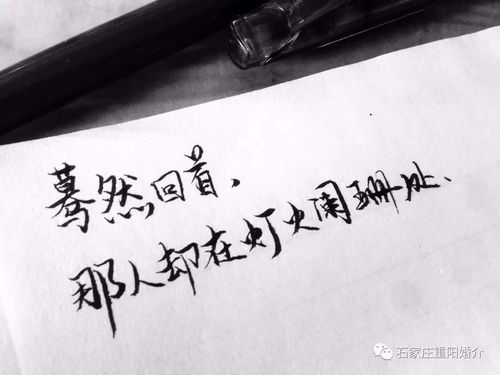 蓦然回首，
那人却在灯火阑珊处、
石家庄重阳婚介